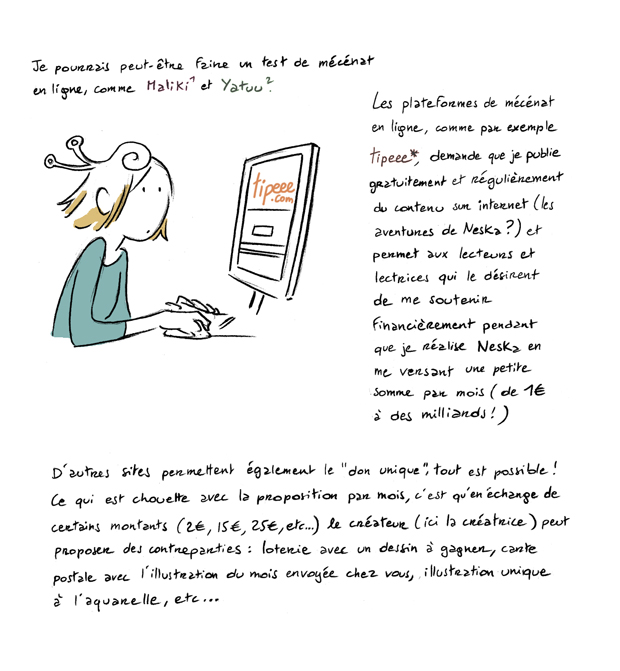 Je pourrais peut-être faire un test de mécénat
en ligne, comme Maliki¹ et Yatuu².
Les plateformes de mécénat
en ligne, comme par exemple
tipeee*, demande que je publie
gratuitement et régulièrement
du contenu sur internet (les
aventures de Neska ?) et
permet aux lecteurs et
lectrices qui le désirent
de me soutenir
financièrement pendant
que je réalise Neska en
me versant une petite
somme par mois (de 1€
à des milliards !)
tipeee
.com
D'autres sites permettent également le "don unique", tout est possible !
Ce qui est chouette avec la proposition par mois, c'est qu'en échange de
certains montants (2€, 15€, 25€, etc...) le créateur (ici la créatrice) peut
proposer des contreparties : loterie avec un dessin à gagner, carte
postale avec l'illustration du mois envoyée chez vous, illustration unique
à l'aquarelle, etc...